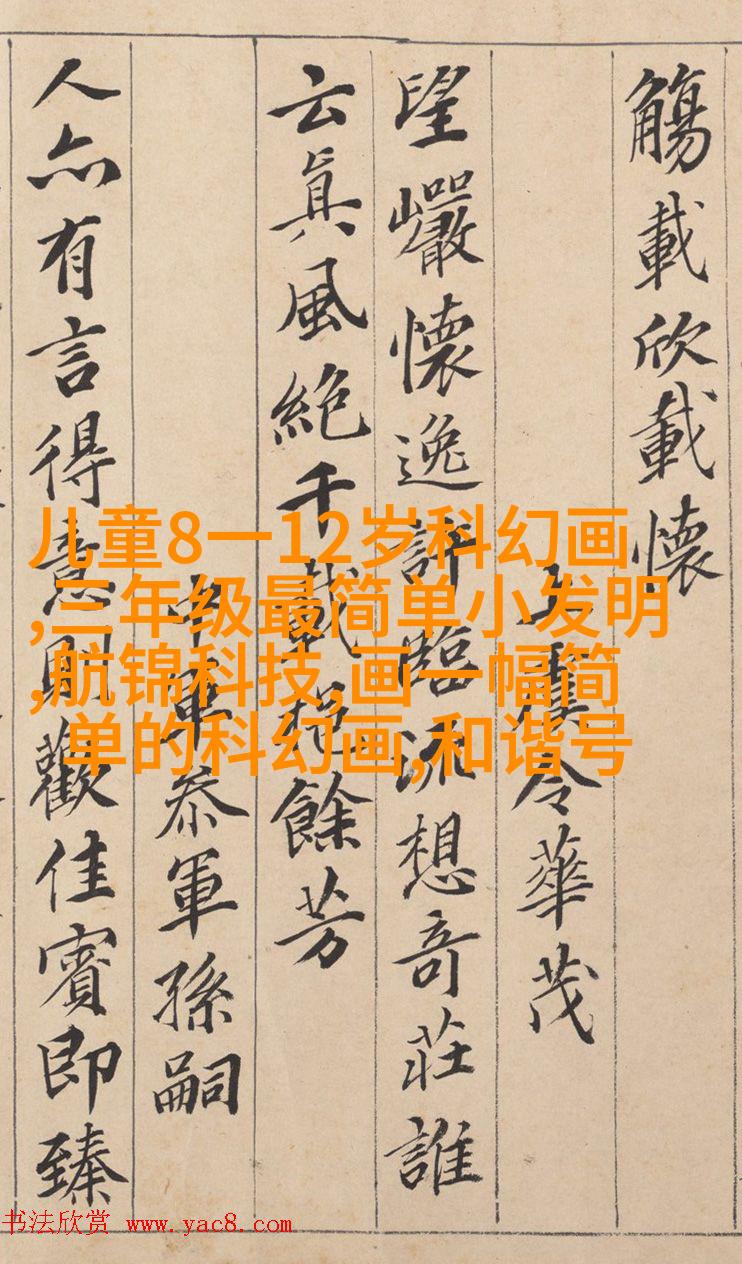 觴載欣載懷
上虞令華茂
望巖懷逸許臨流想奇莊誰
云眞風絕千載挹餘芳
中軍參軍孫嗣
人亦有言得意則歡佳賓即臻
儿童8一12岁科幻画
,三年级最简单小发明
,航锦科技,画一幅简
单的科幻画,和谐号
书法欣赏 www.yac8.com